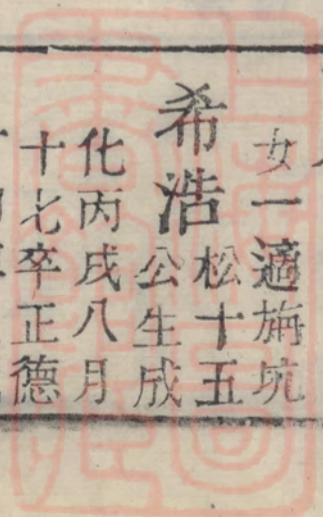 女一適施坑
希浩
松十五
公生成
化丙戌八月
十七卒正德